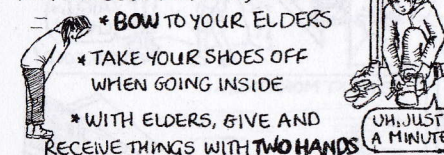 * BOW TO YOUR ELDERS
* TAKE YOUR SHOES OFF
WHEN GOING INSIDE
* WITH ELDERS, GIVE AND
RECEIVE THINGS WITH TWO HANDS
UH, JUST
A MINUTE